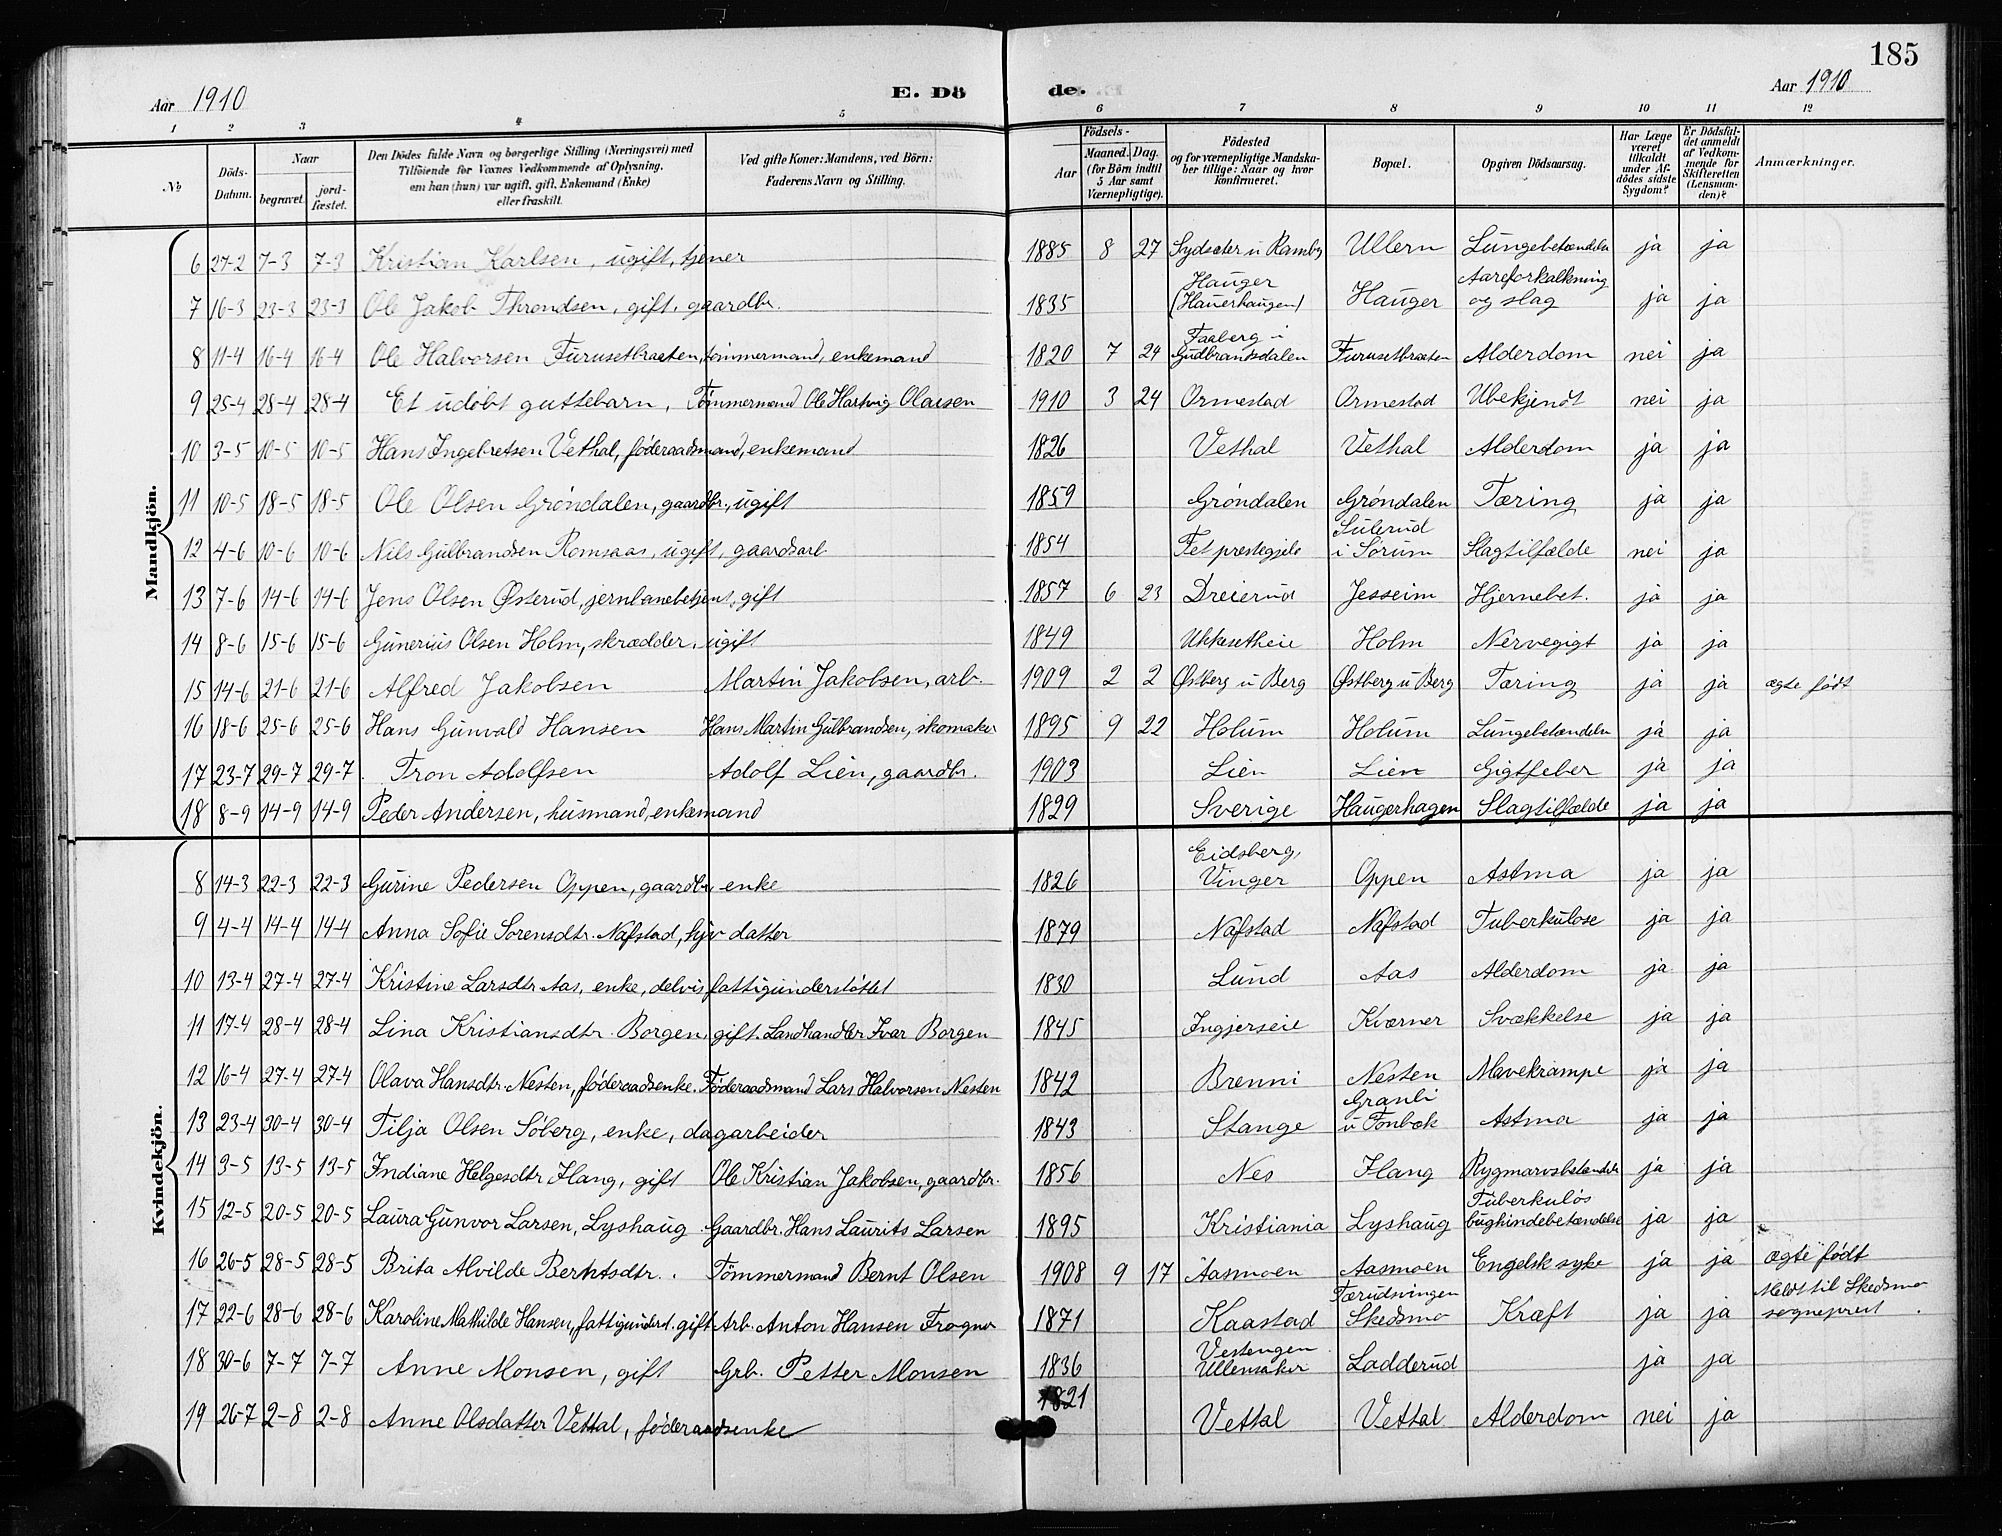 185
Aar 1910 E. Dö de. Aar 1910
1 2 3 4 5 6 7 8 9 10 11 12
No Döds-Datum. Naar begravet. jordfæstet. Den Dödes fulde Navn og borgerlige Stilling (Næringsvei) med Tilföiende for Voxnes Vedkommende af Oplysning, om han (hun) var ugift, gift, Enkemand (Enke) eller fraskilt. Ved gifte Koner: Mandens, ved Börn: Faderens Navn og Stilling. Födsels- Aar Maaned. Dag. (for Börn indtil 5 Aar samt Værnepligtige). Födested og for værnepligtige Mandskaber tillige: Naar og hvor konfirmeret. Bopæl. Opgiven Dödsaarsag. Har Læge været tilkaldt under Afdödes sidste Sygdom? Er Dödsfaldet anmeldt af Vedkommende for Skifteretten (Lensmanden)? Anmærkninger.
Mandkjön.
6 27-2 7-3 7-3 Kristian Karlsen, ugift, tjener 1885 8 27 Sydsæter u Ramby Ullern Lungebetændelse ja ja
7 16-3 23-3 23-3 Ole Jakob Throndsen, gift, gaardbr. 1835 Hauger (Hauerhaugen) Hauger Aareforkalkning og slag ja ja
8 11-4 16-4 16-4 Ole Halvorsen Furusetbraaten, tömmermand, enkemand 1820 7 24 Faaberg i Gudbrandsdalen Furusetbraaten Alderdom nei ja
9 25-4 28-4 28-4 Et udöbt guttebarn, Tömmermand Ole Hartvig Olausen 1910 3 24 Ormestad Ormestad Ubekjendt nei ja
10 3-5 10-5 10-5 Hans Ingebretsen Vethal, föderaadsmand, enkemand 1826 Vethal Vethal Alderdom ja ja
11 10-5 18-5 18-5 Ole Olsen Gröndalen, gaardbr., ugift 1859 Gröndalen Gröndalen Tæring ja ja
12 4-6 10-6 10-6 Nils Gulbrandsen Romsaas, ugift, gaardsarb. 1854 Fet prestegjeld Sulerud i Sörum Slagtilfælde nei ja
13 7-6 14-6 14-6 Jens Olsen Østerud, jernbanebetjent, gift 1857 6 23 Dreierud Jesseim Hjernebet. ja ja
14 8-6 15-6 15-6 Gunerius Olsen Holm, skrædder, ugift 1849 Ukkesetheie Holm Nervegigt ja ja
15 14-6 21-6 21-6 Alfred Jakobsen Martin Jakobsen, arb. 1909 2 2 Østberg u Berg Østberg u Berg Tæring ja ja ægte födt
16 18-6 25-6 25-6 Hans Gunvald Hansen Hans Martin Gulbrandsen, skomaker 1895 9 22 Holum Holum Lungebetændelse ja ja
17 23-7 29-7 29-7 Tron Adolfsen Adolf Lien, gaardbr. 1903 Lien Lien Gigtfeber ja ja
18 8-9 14-9 14-9 Peder Andersen, husmand, enkemand 1829 Sverige Haugerhagen Slagtilfælde ja ja
Kvindekjön.
8 14-3 22-3 22-3 Gurine Pedersen Oppen, gaardbr enke 1826 Eidsberg, Vinger Oppen Astma ja ja
9 4-4 14-4 14-4 Anna Sofie Sorensdtr. Nafstad, hjv datter 1879 Nafstad Nafstad Tuberkulose ja ja
10 13-4 27-4 27-4 Kristine Larsdtr Aas, enke, delvis fattigunderstöttet 1830 Lund Aas Alderdom ja ja
11 17-4 28-4 28-4 Lina Kristiansdtr. Borgen, gift. Landhandler Ivar Borgen 1845 Ingjerseie Kværner Svækkelse ja ja
12 16-4 27-4 27-4 Olava Hansdtr. Nesten, föderaadsenke. Föderaadsmand Lars Halvorsen Nesten 1842 Brenni Nesten Mavekrampe ja ja
13 23-4 30-4 30-4 Tilja Olsen Söberg, enke, dagarbeider 1843 Stange Granli u Tonbæk Astma ja ja
14 3-5 13-5 13-5 Indiane Helgesdtr Hang, gift Ole Kristian Jakobsen, gaardbr. 1856 Nes Hang Rygmarvsbetændelse ja ja
15 12-5 20-5 20-5 Laura Gunvor Larsen, Lyshaug Gaardbr. Hans Laurits Larsen 1895 Kristiania Lyshaug Tuberkulös bughindebetændelse ja ja
16 26-5 28-5 28-5 Brita Alvilde Berntsdtr. Tömmermand Bernt Olsen 1908 9 17 Aasmoen Aasmoen Engelsk syke ja ja ægte födt
17 22-6 28-6 28-6 Karoline Mathilde Hansen, fattigunderst. gift Arb. Anton Hansen Frogner 1871 Kaastad Færudsningen Skedsmo Kræft ja ja Meldt til Skedsmo sogneprest.
18 30-6 7-7 7-7 Anne Monsen, gift Grb. Petter Monsen 1836 Vestengen Ullensaker Ladderud ja ja
19 26-7 2-8 2-8 Anne Olsdatter Vettal, föderaadsenke 1821 Vettal Vettal Alderdom nei ja